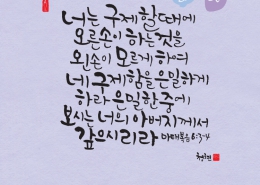 너는 구제할 때에
오른손이 하는것을
왼손이 모르게 하여
네 구제함을 은밀하게
하라 은밀한 중에
보시는 너의 아버지께서
갚으시리라 마태복음 6:3-4